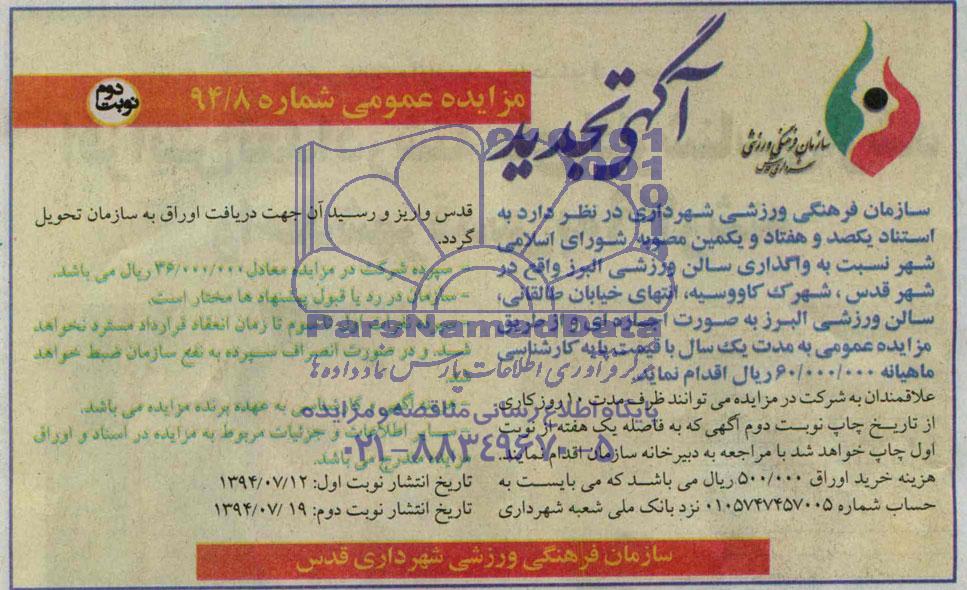 سازمان فرهنگی ورزشی
آگهی تجدید
مزایده عمومی شماره ۹۴/۸
نوبت دوم
سازمان فرهنگی ورزشی شهرداری در نظر دارد به
استناد یکصد و هفتاد و یکمین مصوبه شورای اسلامی
شهر نسبت به واگذاری سالن ورزشی البرز واقع در
شهر قدس ، شهرک کاووسیه، انتهای خیابان طالقانی،
سالن ورزشی البرز به صورت اجاره ای و از طریق
مزایده عمومی به مدت یک سال با قیمت پایه کارشناسی
ماهیانه ۶۰/۰۰۰/۰۰۰ ریال اقدام نماید.
علاقمندان به شرکت در مزایده می توانند ظرف مدت ۱۰ روز کاری
از تاریخ چاپ نوبت دوم آگهی که به فاصله یک هفته از نوبت
اول چاپ خواهد شد با مراجعه به دبیرخانه سازمان اقدام نمایند.
هزینه خرید اوراق ۵۰۰/۰۰۰ ریال می باشد که می بایست به
حساب شماره ۰۱۰۵۷۴۷۴۵۷۰۰۵ نزد بانک ملی شعبه شهرداری
قدس واریز و رسید آن جهت دریافت اوراق به سازمان تحویل
گردد.
- سپرده شرکت در مزایده معادل ۳۶/۰۰۰/۰۰۰ ریال می باشد.
- سازمان در رد یا قبول پیشنهاد ها مختار است.
- سپرده نفرات اول تا سوم تا زمان انعقاد قرارداد مسترد نخواهد
شد. و در صورت انصراف سپرده به نفع سازمان ضبط خواهد
شد.
- هزینه آگهی و کارشناسی به عهده برنده مزایده می باشد.
- سایر اطلاعات و جزئیات مربوط به مزایده در اسناد و اوراق
مزایده مندرج می باشد.
تاریخ انتشار نوبت اول: ۱۳۹۴/۰۷/۱۲
تاریخ انتشار نوبت دوم: ۱۳۹۴/۰۷/۱۹
سازمان فرهنگی ورزشی شهرداری قدس
ParsNamadData
مرکز فرآوری اطلاعات پارس نماد داده ها
پایگاه اطلاع رسانی مناقصه و مزایده
۰۲۱-۸۸۳۴۹۶۷۰-۵